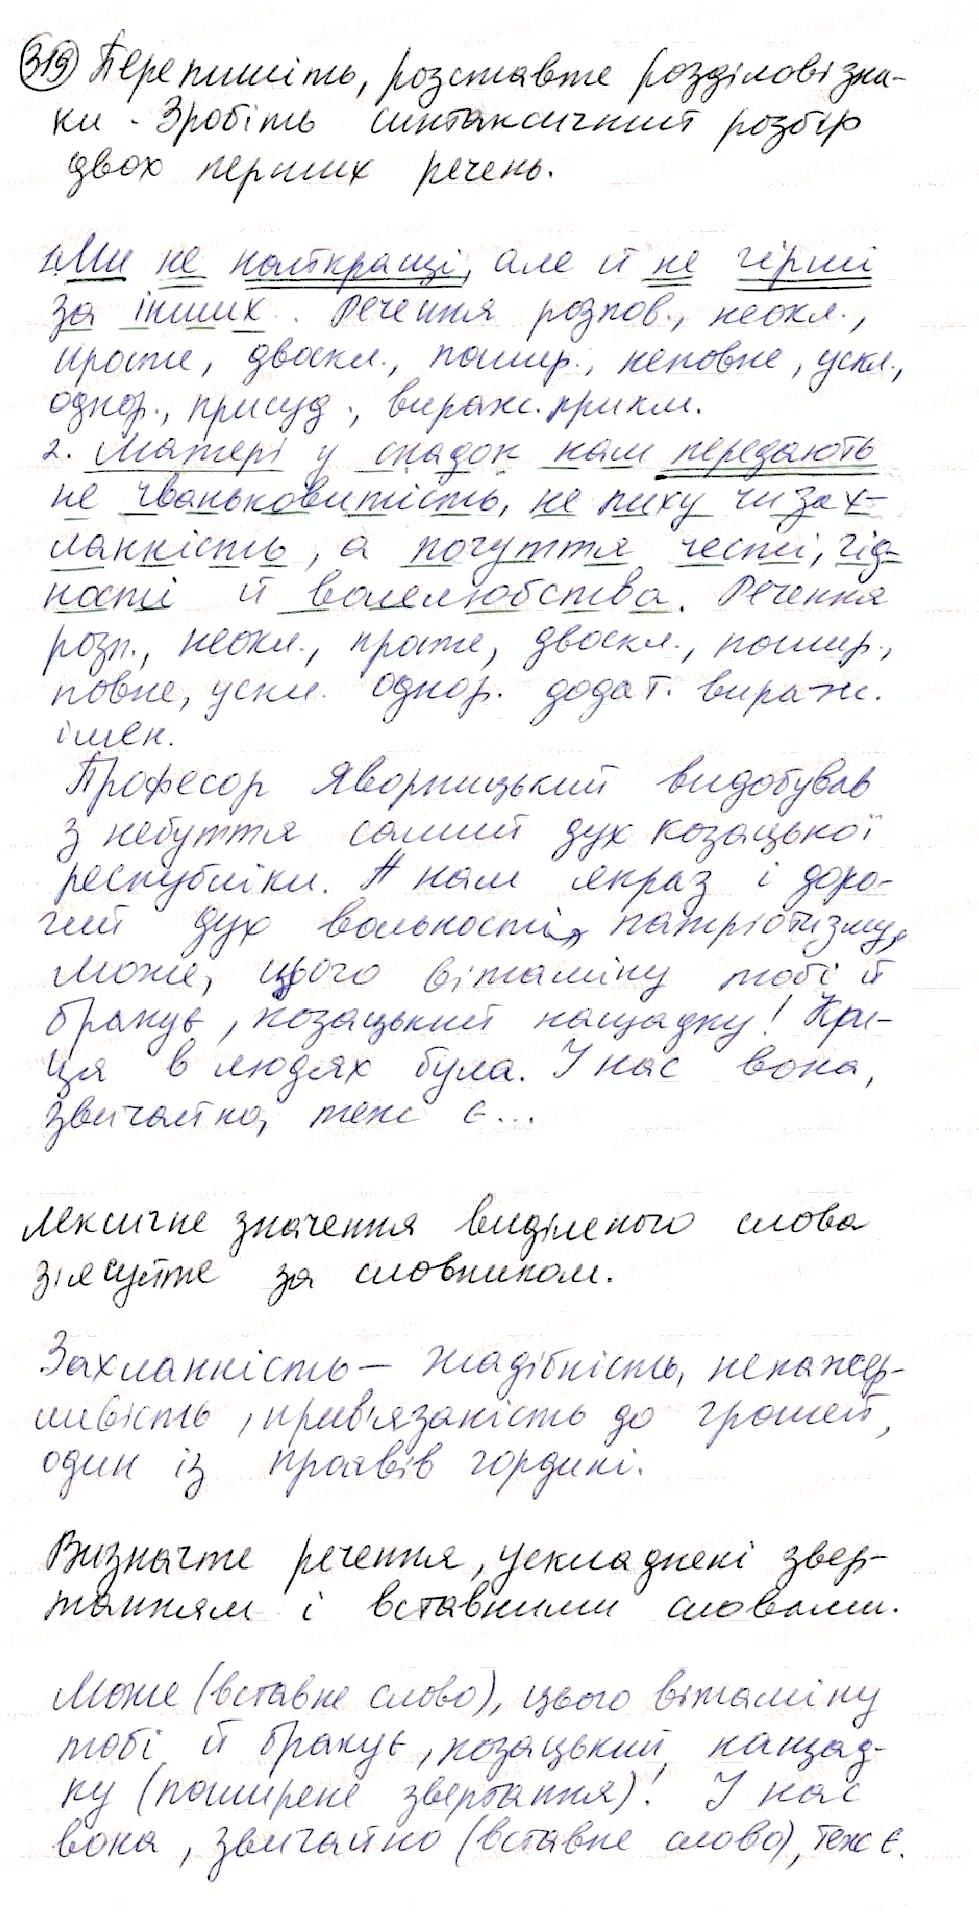 319 Перепишіть, розставте розділові зна-
ки. Зробіть синтаксичний розбір
двох перших речень.
1. Ми не найкращі, але й не гірші
за інших. Речення розпов., неокл.,
просте, двоскл., пошир., неповне, ускл.,
однор., присуд., вираж. прикм.
2. Матері у спадок нам передають
не чваньковитість, не пиху чи зах-
ланність, а почуття честі, гід-
ності й волелюбства. Речення
розп., неокл., просте, двоскл., пошир.,
повне, ускл. однор. додат. вираж.
імен.
Професор Яворницький видобував
з небуття самий дух козацької
республіки. А нам якраз і доро-
гий дух вольності, патріотизму.
Може, цього вітаміну тобі й
бракує, козацький нащадку! Кри-
ця в людях була. У нас вона,
звичайно, теж є...
Лексичне значення виділеного слова
зіясуйте за словником.
Захланність – жадібність, ненажер-
ливість, прив'язаність до грошей,
один із проявів гордині.
Визначте речення, ускладнені звер-
танням і вставними словами.
Може (вставне слово), цього вітаміну
тобі й бракує, козацький нащад-
ку (поширене звертання)! У нас
вона, звичайно (вставне слово), теж є.